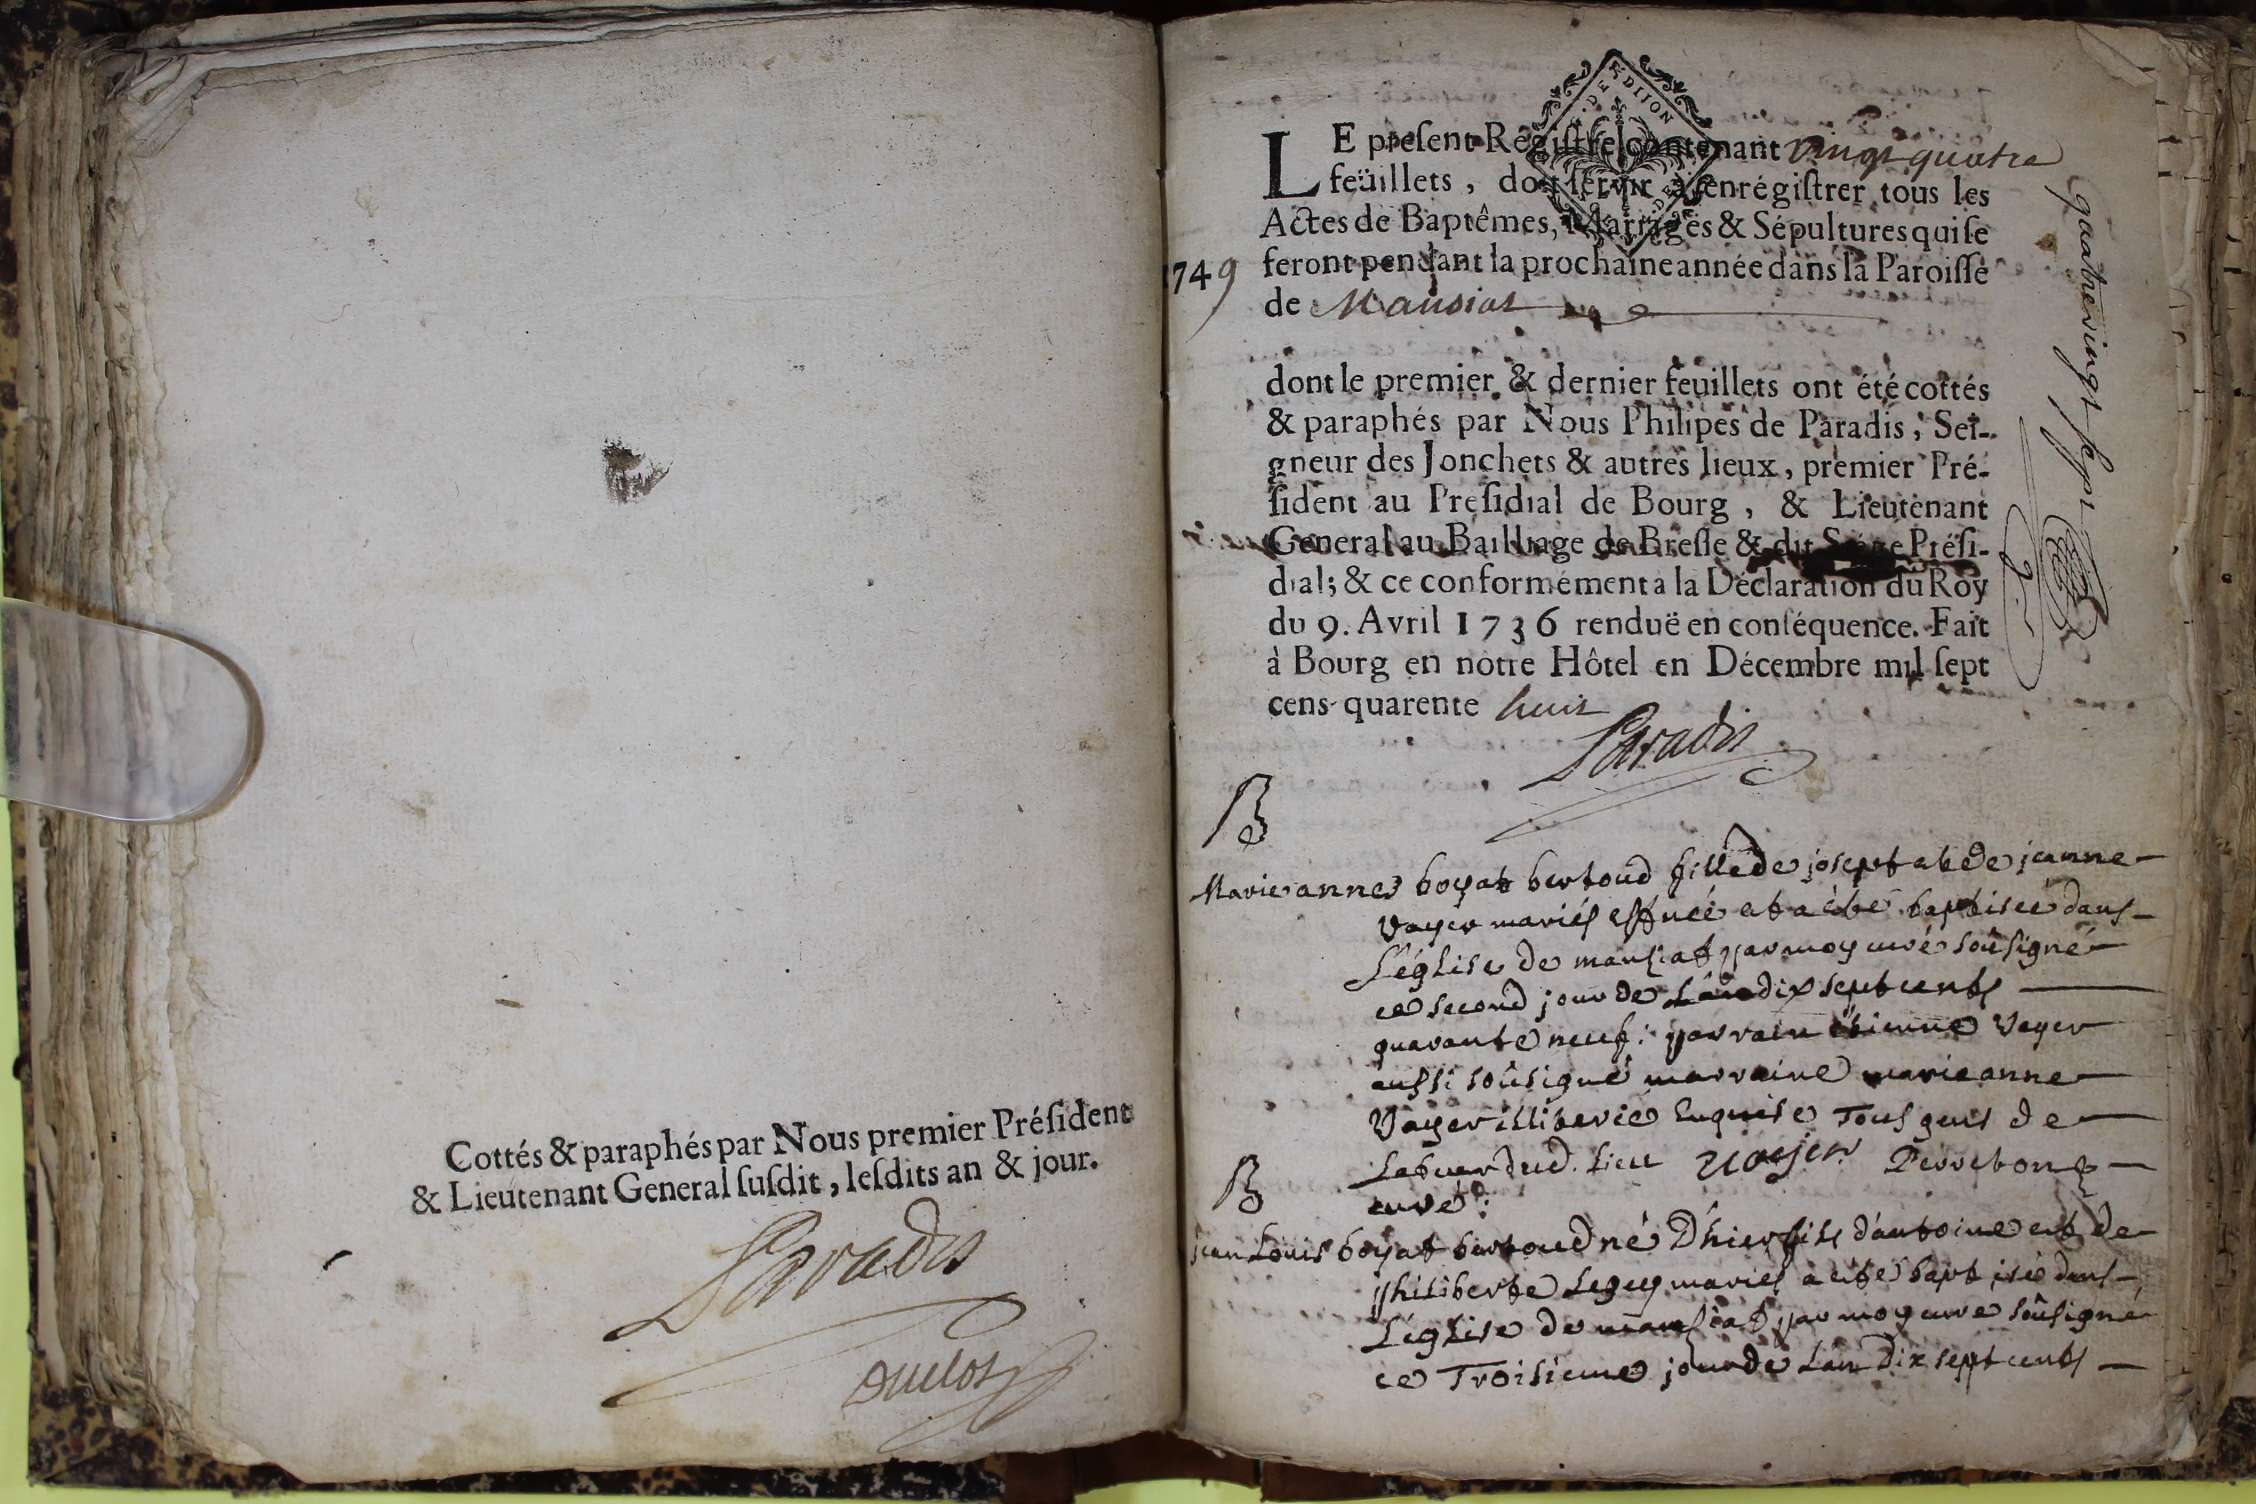 Cottés & paraphés par Nous premier Préſident
& Lieutenant General ſuſdit, leſdits an & jour.
Paradis
Duclos
DE DIJON
LE preſent Régiſtre contenant vingt quatre
feüillets, doit ſervir à enrégiſtrer tous les
Actes de Baptêmes, Mariages & Sépultures qui ſe
feront pendant la prochaine année dans la Paroiſſe
1749
de Mansiat
quatre vingt sept
dont le premier & dernier feuillets ont été cottés
& paraphés par Nous Philipes de Paradis, Sei-
gneur des Jonchets & autres lieux, premier Pré-
ſident au Preſidial de Bourg, & Lieutenant
General au Bailliage de Breſſe & dit Siége Préſi-
dial; & ce conformément à la Déclaration du Roy
du 9. Avril 1736 renduë en conſéquence. Fait
à Bourg en notre Hôtel en Décembre mil ſept
cens quarente huit
Paradis
B
Marie anne boyat bertoud fille de josept et de jeanne
Vayer mariés est née et a été baptisée dans
L'église de mansiat par moy curé soûsigné
ce second jour de L'an dix sept cents
quarante neuf: parrain etienne Vayer
aussi soûsigné marraine marie anne
Vayer illiterée Enquise Tous gens de
dud. Lieu voyer Perreton
curé:
B
jean Louis boyat bertoud né D'hier fils d'antoine et de
philiberte Leguy mariés a été baptisé dans
L'église de mansiat par moy curé soûsigné
ce Troisieme jour de L'an dix sept cents